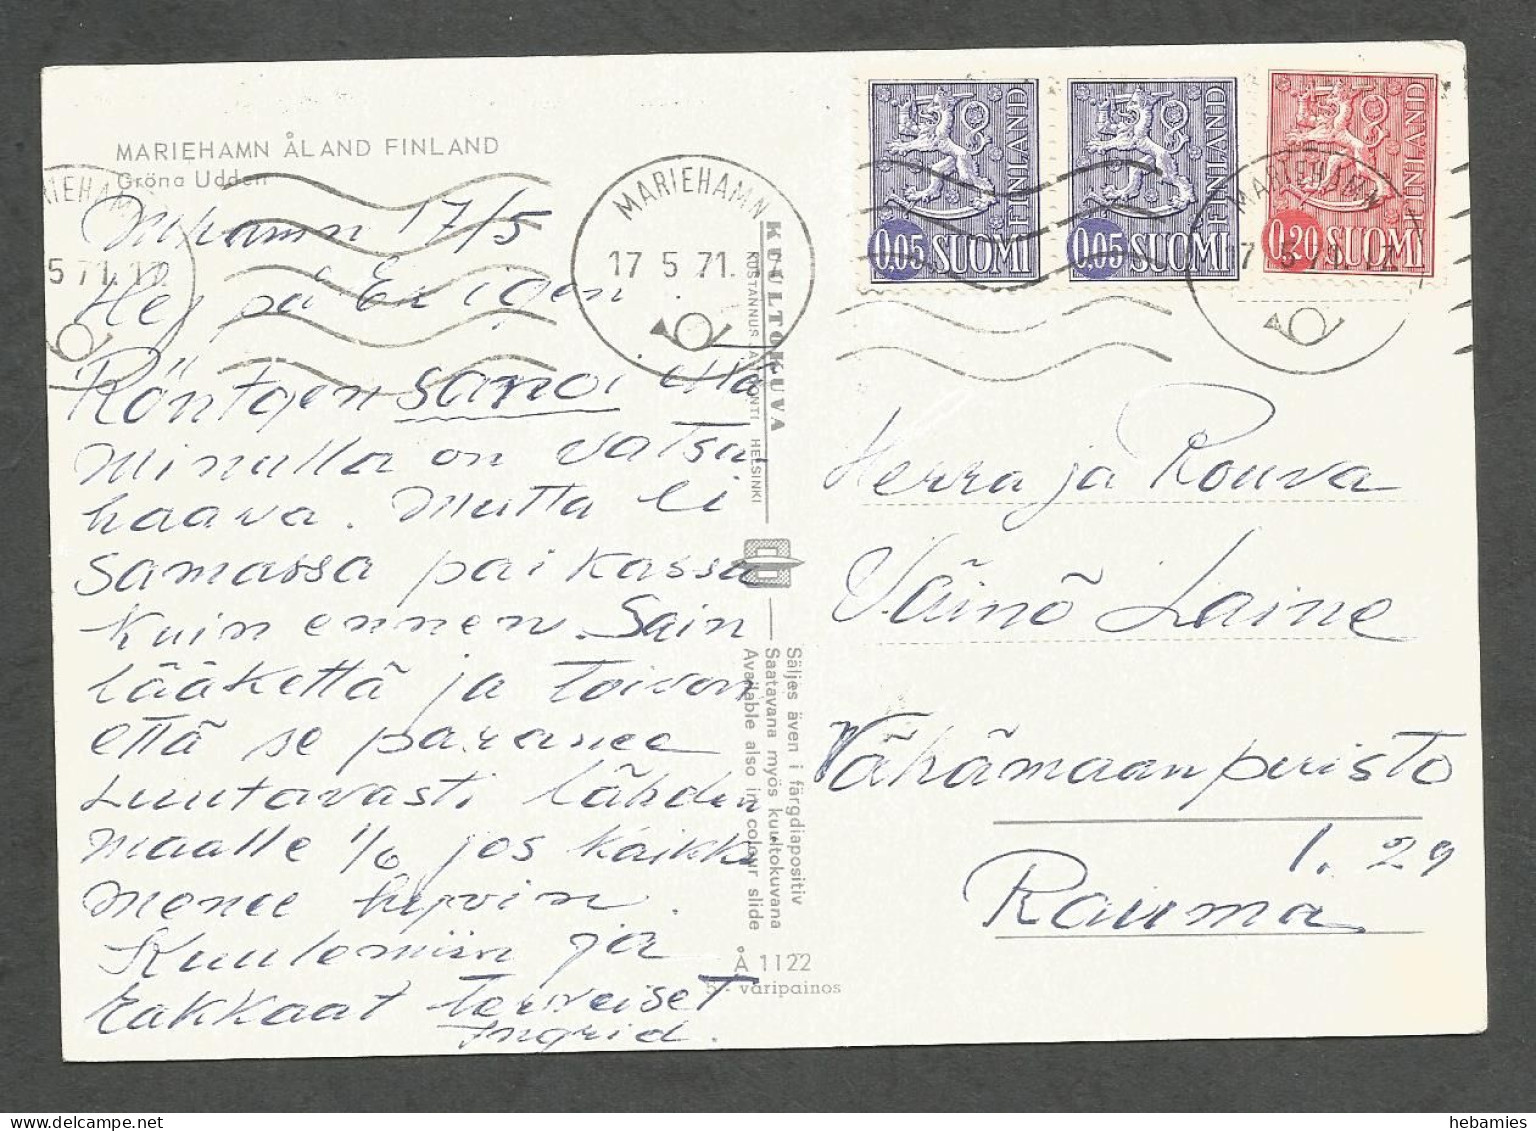 MARIEHAMN ÅLAND FINLAND
Gröna Udden
M:hamn 17/5
Hej på Er igen.
Röntgen sanoi että
Minulla on vatsa
haava. Mutta ei
samassa paikassa
kuin ennen. Sain
lääkettä ja toivon
että se paranee
Luutavasti lähden
maalle 1/6 jos kaikki
menee hyvin.
Kuulemiin ja
Rakkaat terveiset
Ingrid.
MARIEHAMN
5 71.17
MARIEHAMN
17 5 71.
MARIEHAMN
17 5 71.17
KUULTOKUVA
KUSTANNUS HELSINKI
Säljes även i färgdiapositiv
Saatavana myös kuultokuvana
Available also in colour slide
Å 1122
5- väripainos
FINLAND
0,05 SUOMI
FINLAND
0,05 SUOMI
FINLAND
0,20 SUOMI
Herra ja Rouva
Väinö Laine
Vähämaanpuisto
1. 29
Rauma
hebamies @ delcampe.net